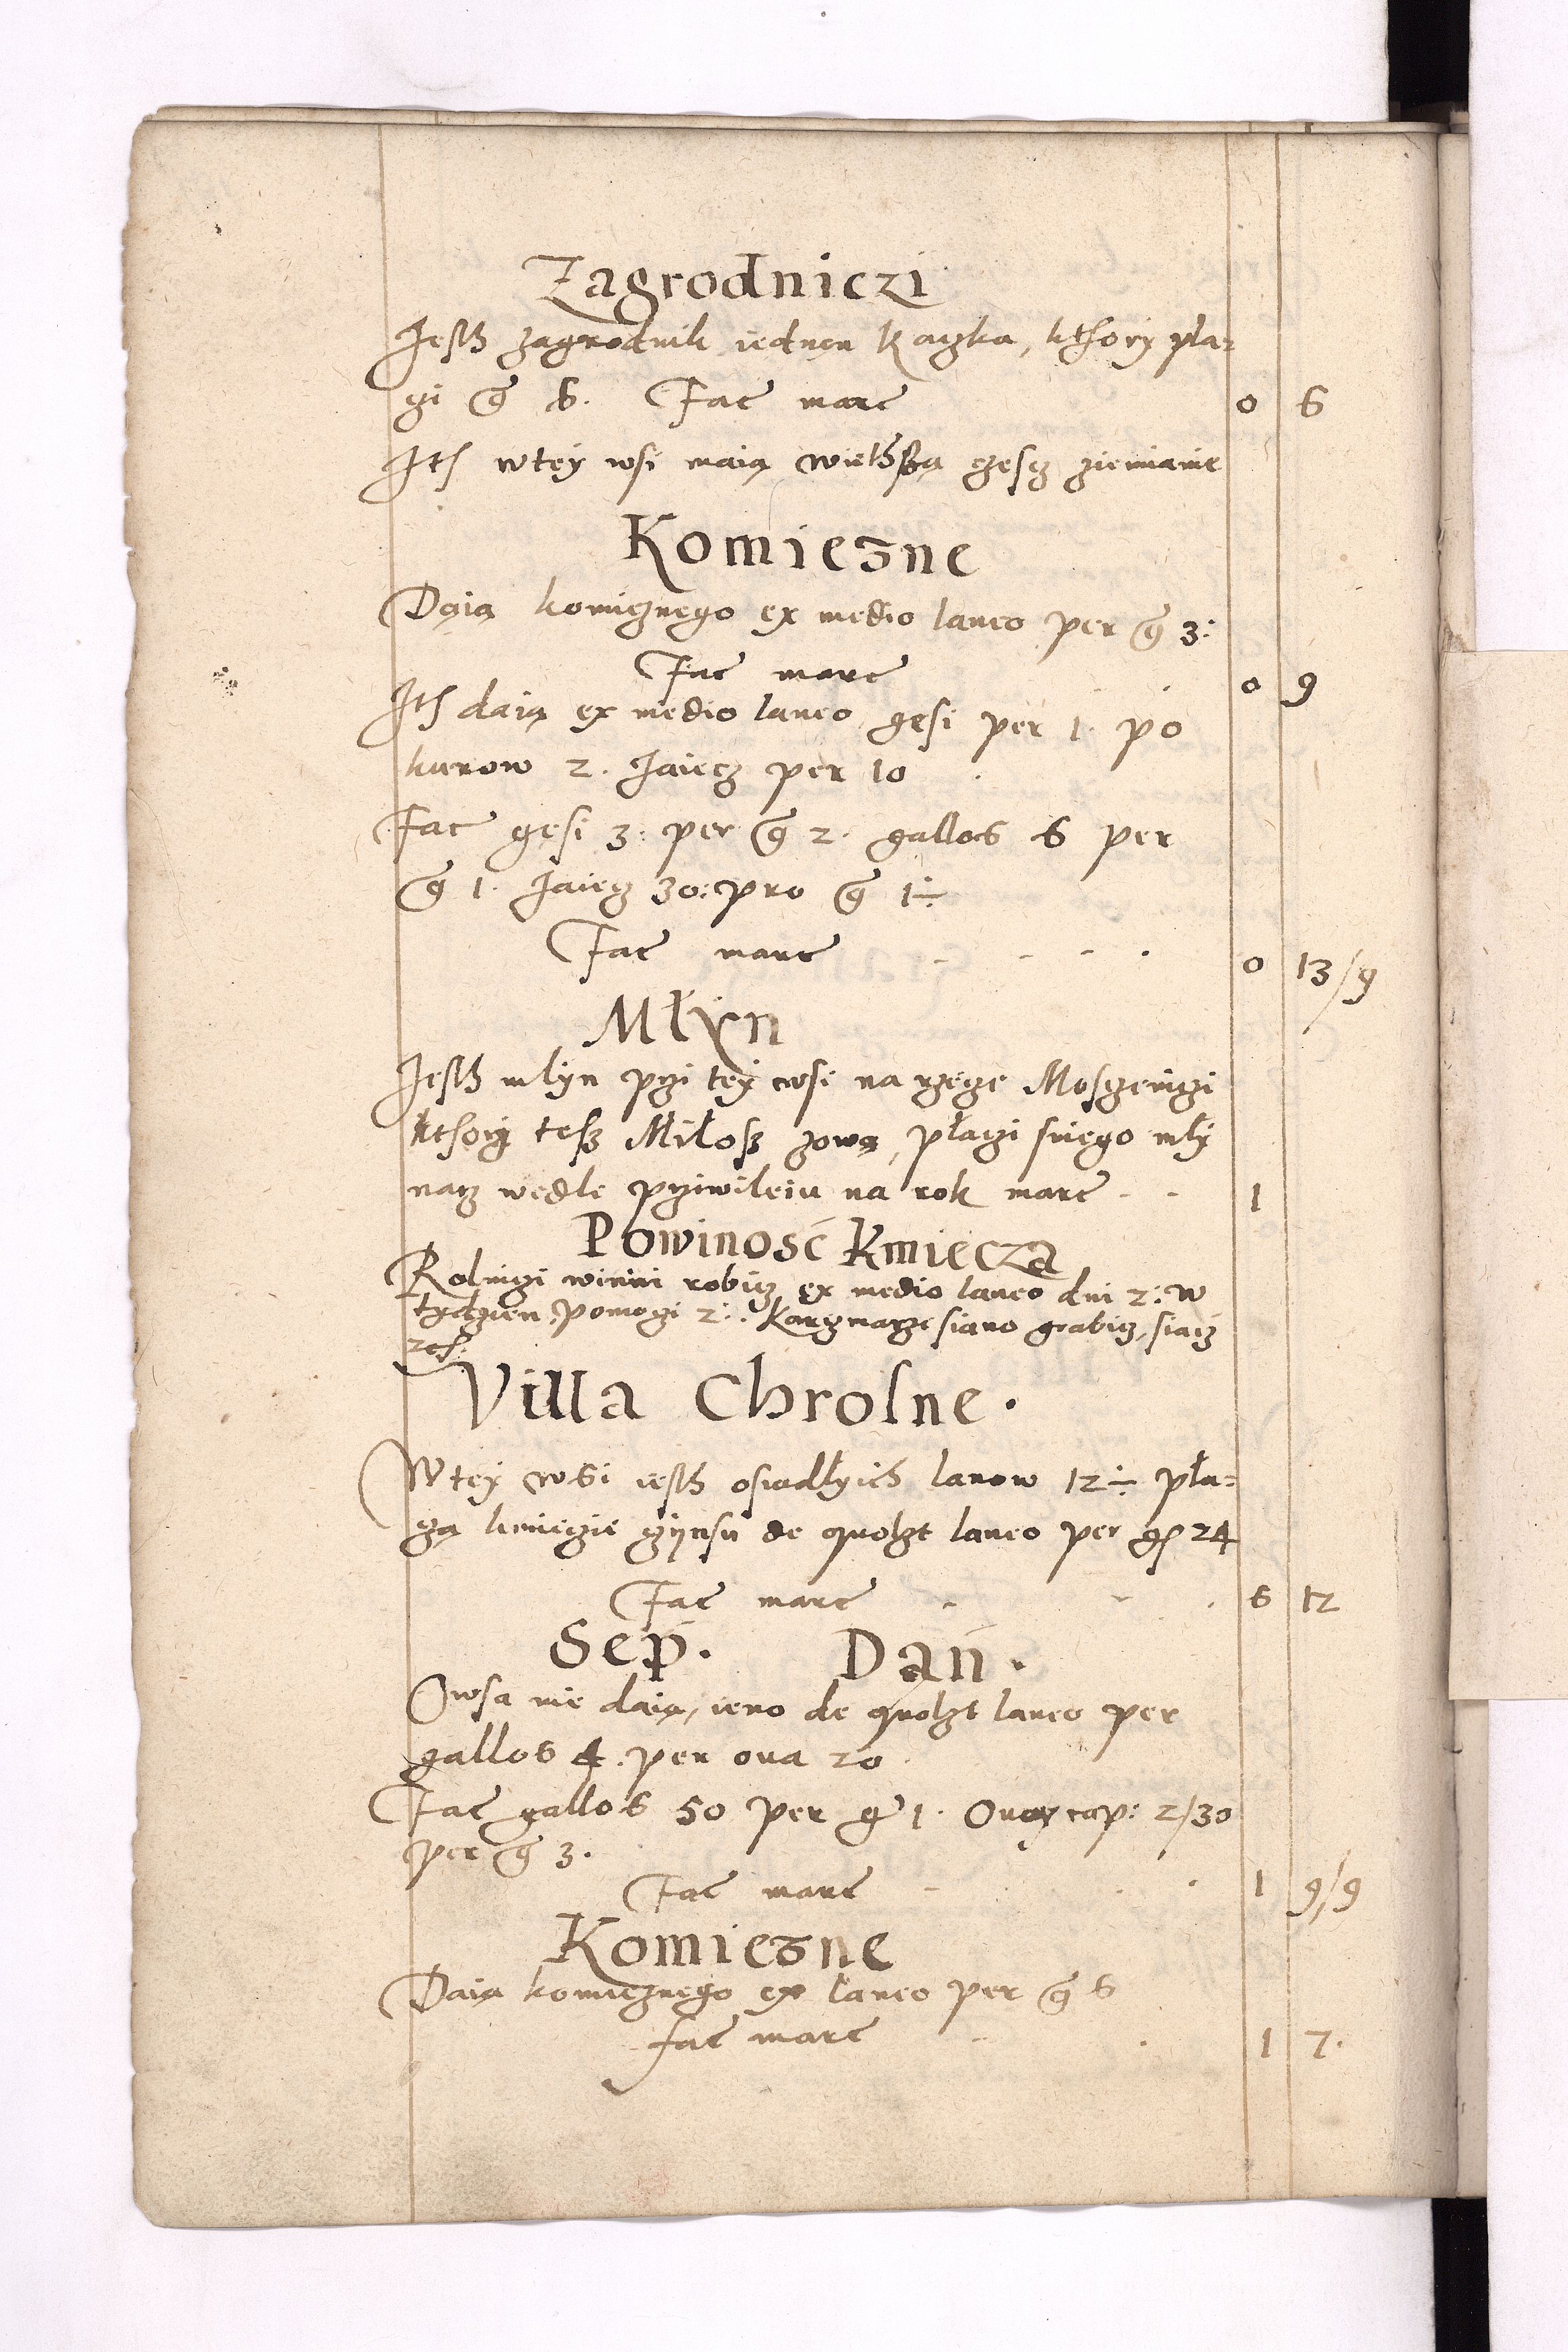 Zagrodniczi
Jesth zagrodnik ieden Kaczka, kthory pła=
czi g 6. Fac marc 0 6
Ith wtey wsi maią wiethßą czescz ziemianie
Komiezne
Daią komieznego ex medio laneo per g 3:
Fac marc 0 9
Ith daią ex medio laneo gęsi per 1. po
kurow 2. Jaiecz per 10
Fac gęsi 3: per g 2. gallos 6 per
g 1. Jaiecz 30: pro g 1÷
Fac marc 0 13/9
Młyn
Jesth młyn przi tey wsi na rzecze Mosczeniczi
kthorą teß Miłosz zową, płaczi sniego mły
narz wedle przywileiu na rok marc 1
Powinosć Kmiecza
Rolniczi winni robicz ex medio laneo dni 2: w
tydzien, pomogi 2: Karczmarze siano grabicz, siacz
zcs:
Villa Chrosne.
W tey wsi iesth osiadłyich lanow 12÷ pła=
czą kmieczie czynsu de quolzt laneo per gs 24
Fac marc 6 12
Sep. Dań.
Owsa nie daią, ieno de quolzt laneo per
gallos 4. per oua 20.
Fac gallos 50 per g 1. Ouor cap: 2/30
per g 3.
Fac marc 1 9/9
Komiezne
Daią komieznego ex laneo per g 6
fac marc 1 7.